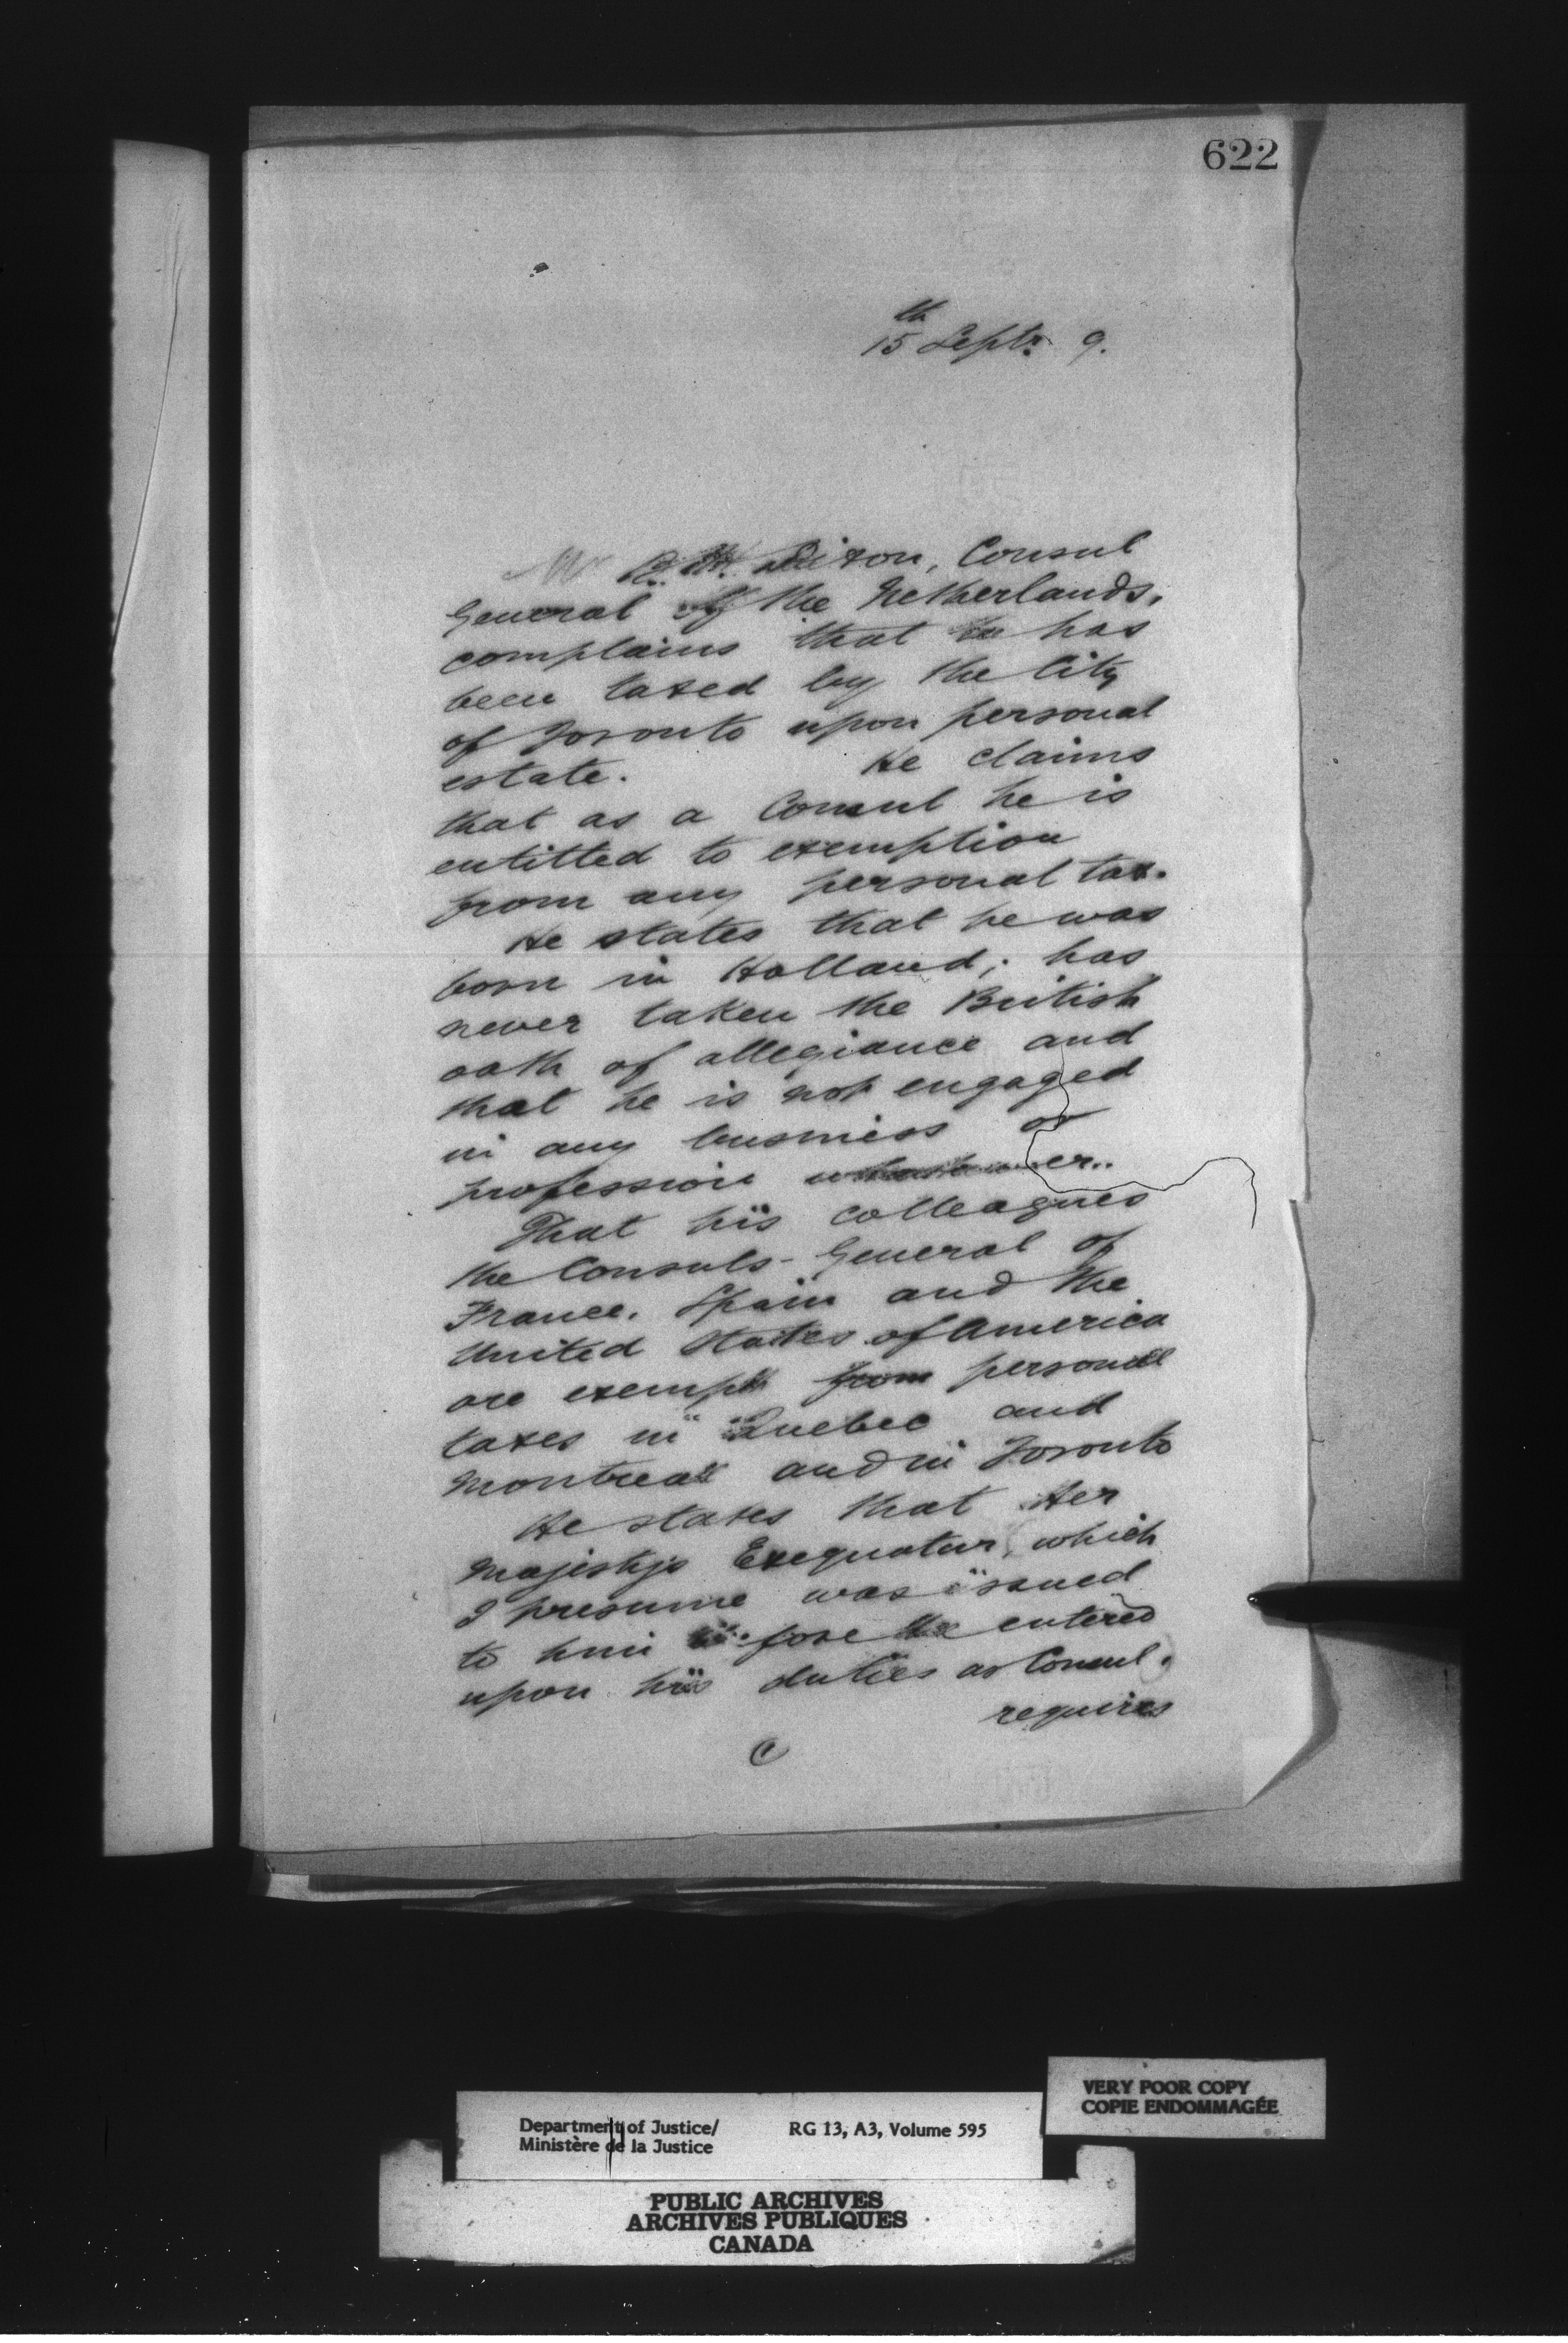 622
15th Septr 9.
Mr B. H. Dixon, Consul
General of the Netherlands,
complains that he has
been taxed by the City
of Toronto upon personal
estate. He claims
that as a Consul he is
entitled to exemption
from any personal tax.
He states that he was
born in Holland; has
never taken the British
oath of allegiance and
that he is not engaged
in any business or
profession whatsoever.
That his colleagues
the Consuls-General of
France, Spain and the
United States of America
are exempt from personal
taxes in Quebec and
Montreal and in Toronto
He states that Her
Majesty's Exequatur, (which
I presume was issued
to him before he entered
upon his duties as Consul)
requires
C
VERY POOR COPY
COPIE ENDOMMAGÉE
Department of Justice/ RG 13, A3, Volume 595
Ministère de la Justice
PUBLIC ARCHIVES
ARCHIVES PUBLIQUES
CANADA